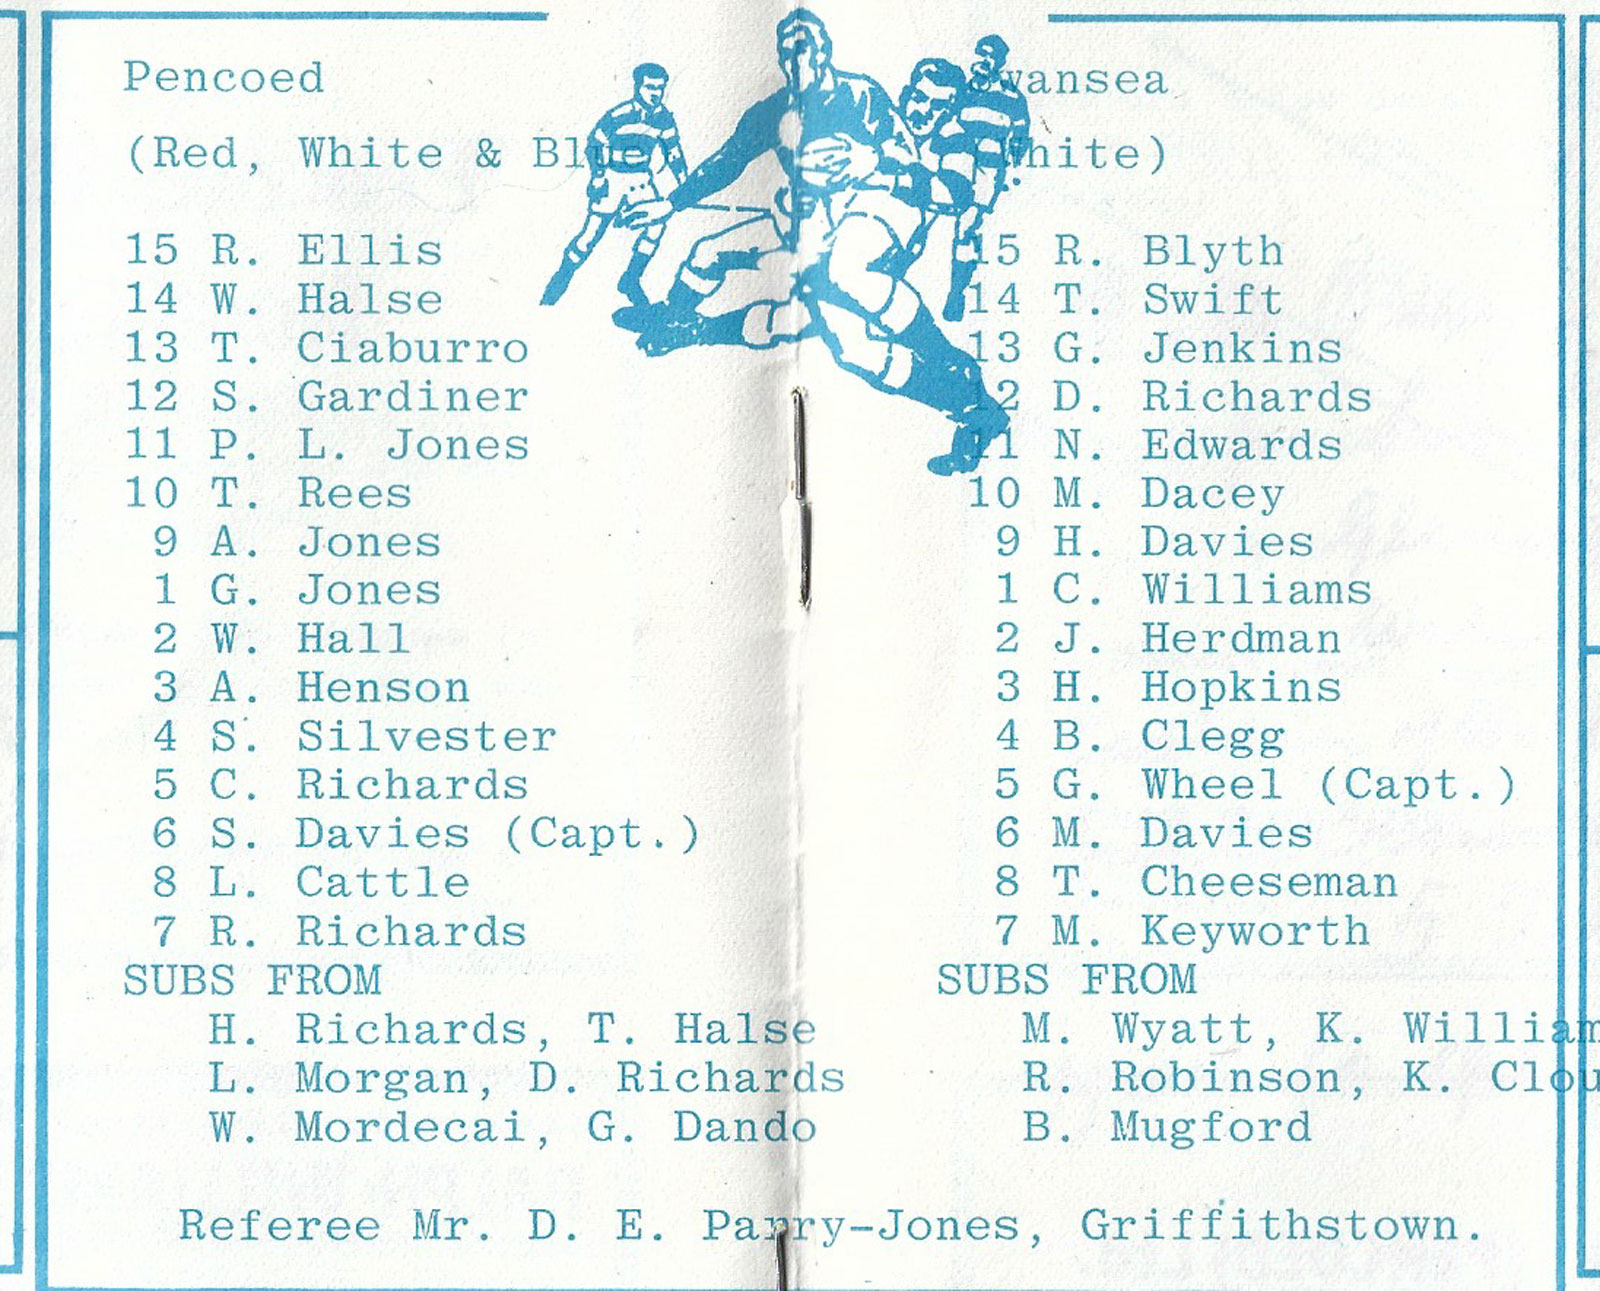 Pencoed
(Red, White & Blue)
15 R. Ellis
14 W. Halse
13 T. Ciaburro
12 S. Gardiner
11 P. L. Jones
10 T. Rees
9 A. Jones
1 G. Jones
2 W. Hall
3 A. Henson
4 S. Silvester
5 C. Richards
6 S. Davies (Capt.)
8 L. Cattle
7 R. Richards
SUBS FROM
H. Richards, T. Halse
L. Morgan, D. Richards
W. Mordecai, G. Dando
Swansea
(White)
15 R. Blyth
14 T. Swift
13 G. Jenkins
12 D. Richards
11 N. Edwards
10 M. Dacey
9 H. Davies
1 C. Williams
2 J. Herdman
3 H. Hopkins
4 B. Clegg
5 G. Wheel (Capt.)
6 M. Davies
8 T. Cheeseman
7 M. Keyworth
SUBS FROM
M. Wyatt, K.
R. Robinson, K.
B. Mugford
Referee Mr. D. E. Parry-Jones, Griffithstown.